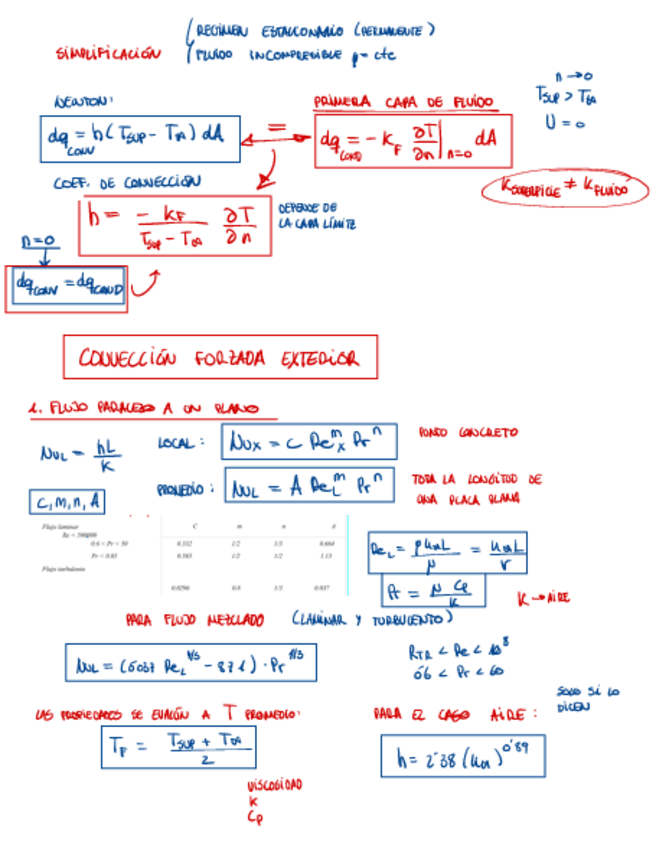 SIMPLIFICACIÓN
RÉGIMEN ESTACIONARIO (PERMANENTE)
FLUIDO INCOMPRESIBLE ρ = cte
NEWTON:
dq_conv = h(T_sup - T_∞) dA
=
PRIMERA CAPA DE FLUIDO
dq_cond = - K_F ∂T/∂n |_{n=0} dA
n → 0
T_sup > T_∞
U = 0
K_superficie ≠ K_fluido
COEF. DE CONVECCIÓN
h = - K_F / (T_sup - T_∞) ∂T/∂n
DEPENDE DE
LA CAPA LÍMITE
n = 0
dq_conv = dq_cond
CONVECCIÓN FORZADA EXTERIOR
1. FLUJO PARALELO A UN PLANO
Nu_L = hL/K
LOCAL: Nu_x = C Re_x^m Pr^n
PUNTO CONCRETO
PROMEDIO: Nu_L = A Re_L^m Pr^n
TODA LA LONGITUD DE
UNA PLACA PLANA
C, m, n, A
Flujo laminar C m n A
0.6 < Pr < 50 0.332 1/2 1/3 0.664
1/2 1/3 1.13
Flujo turbulento
0.0296 0.8 1/3 0.037
Re_L = ρ u_∞ L / μ = u_∞ L / ν
Pr = μ Cp / K
K → AIRE
PARA FLUJO MEZCLADO (LAMINAR Y TURBULENTO)
Nu_L = (0'037 Re_L^{4/5} - 871) · Pr^{1/3}
R_TR < Re < 10^8
0'6 < Pr < 60
LAS PROPIEDADES SE EVALÚN A T PROMEDIO:
T_P = (T_sup + T_∞) / 2
VISCOSIDAD
K
Cp
PARA EL CASO AIRE:
SOLO SI LO
DICEN
h = 2'38 (u_∞)^{0'89}